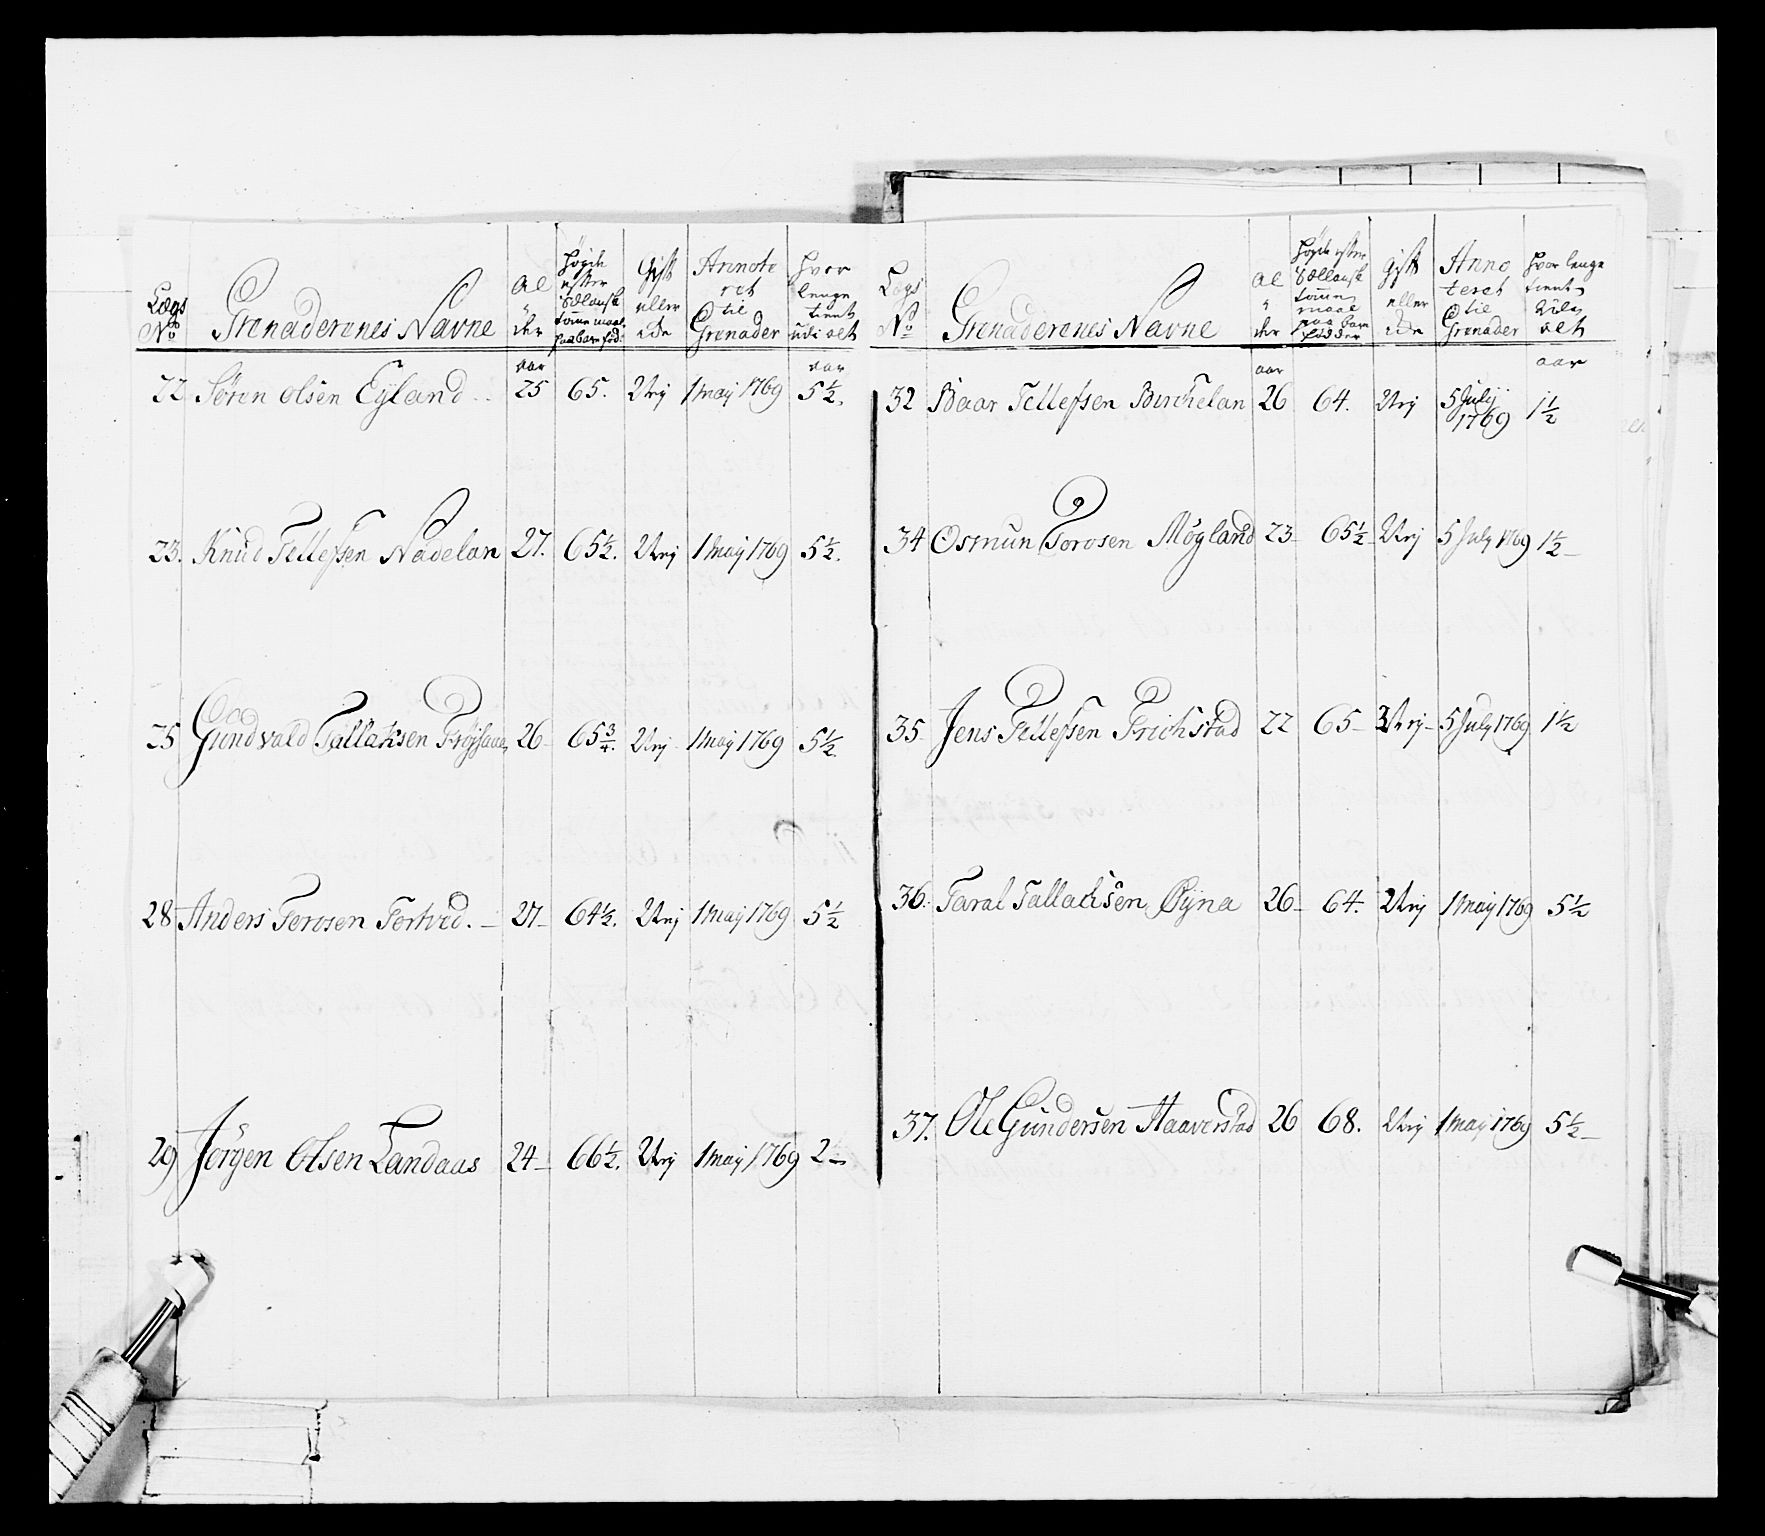 Lægs No Grenaderenes Navne Al der Høyde efter Siælansk tomme maal paa bare fød: Gift eller Ede Annote ret til Grenader Hvor lenge tient udi alt
aar aar
22 Sören olsen Eyland 25 65. Urij 1 maij 1769 5 1/2.
23. Knud Tellefsen Nadelan 27. 65 1/2. Urij 1 Maij 1769 5 1/2.
25 Gundvald Tallaksen 26 65 3/4. Urij 1 Maij 1769 5 1/2.
28 Anders Terosen Tortved. 27 64 1/2. Urij 1 Maij 1769 5 1/2
29 Jörgen Olsen Landaas 24 66 1/2. Urij 1 Maij 1769 2
Lægs No Grenaderenes Navne Al der Høyde efter Siællansk tomme maal paa bare födder Gift eller Ede Anno teret til Grenader Hvor lenge tient alt
aar aar
32 Baar Tellefsen Birchelan 26 64. Urij 5 Julij 1769 1 1/2
34 Osmun Torosen Mögland 23 65 1/2 Urij 5 July 1769 1 1/2
35. Jens Tellefsen Frichstad 22 65 Urij 5 July 1769 1 1/2
36. Taral Tallachsen Øyna 26 64. Urij 1 Maij 1769 5 1/2
37. Ole Gundersen Haaverstad 26 68. Urij 1 Maij 1769 5 1/2